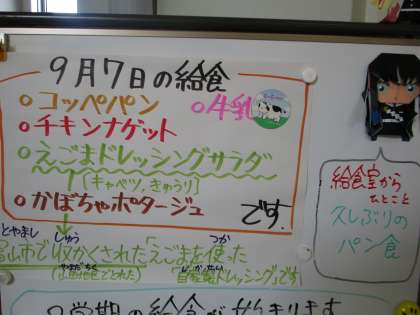 9月7日の給食
○コッペパン ○牛乳
○チキンナゲット
○えごまドレッシングサラダ
[キャベツ,きゅうり]
○かぼちゃポタージュ です。
とやまし しゅう つか
山市で収かくされた「えごまを使った
ドレッシング」です
給食室から
ひとこと
久しぶりの
パン食
学期の給食が始まります